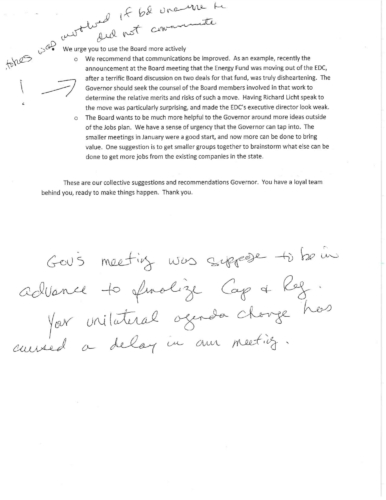 was
if bd unaware he
did not communicate
We urge you to use the Board more actively
o We recommend that communications be improved. As an example, recently the
announcement at the Board meeting that the Energy Fund was moving out of the EDC,
after a terrific Board discussion on two deals for that fund, was truly disheartening. The
Governor should seek the counsel of the Board members involved in that work to
determine the relative merits and risks of such a move. Having Richard Licht speak to
the move was particularly surprising, and made the EDC's executive director look weak.
o The Board wants to be much more helpful to the Governor around more ideas outside
of the Jobs plan. We have a sense of urgency that the Governor can tap into. The
smaller meetings in January were a good start, and now more can be done to bring
value. One suggestion is to get smaller groups together to brainstorm what else can be
done to get more jobs from the existing companies in the state.
These are our collective suggestions and recommendations Governor. You have a loyal team
behind you, ready to make things happen. Thank you.
Gov's meeting was suppose to be in
advance to finalize Cap & Reg.
Your unilateral agenda change has
caused a delay in our meeting.